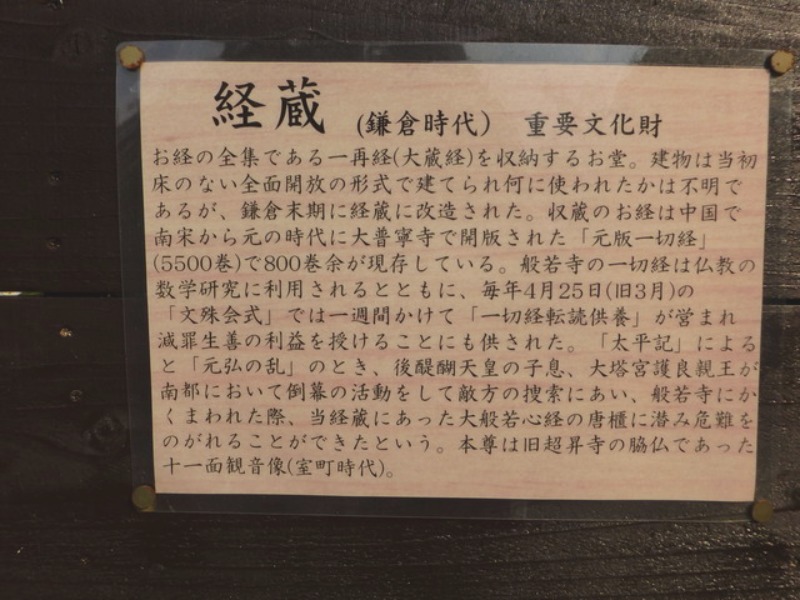 経蔵 (鎌倉時代) 重要文化財
お経の全集である一再経(大蔵経)を収納するお堂。建物は当初
床のない全面開放の形式で建てられ何に使われたかは不明で
あるが、鎌倉末期に経蔵に改造された。収蔵のお経は中国で
南宋から元の時代に大普寧寺で開版された「元版一切経」
(5500巻)で800巻余が現存している。般若寺の一切経は仏教の
数学研究に利用されるとともに、毎年4月25日(旧3月)の
「文殊会式」では一週間かけて「一切経転読供養」が営まれ
滅罪生善の利益を授けることにも供された。「太平記」による
と「元弘の乱」のとき、後醍醐天皇の子息、大塔宮護良親王が
南都において倒幕の活動をして敵方の捜索にあい、般若寺にか
くまわれた際、当経蔵にあった大般若心経の唐櫃に潜み危難を
のがれることができたという。本尊は旧超昇寺の脇仏であった
十一面観音像(室町時代)。